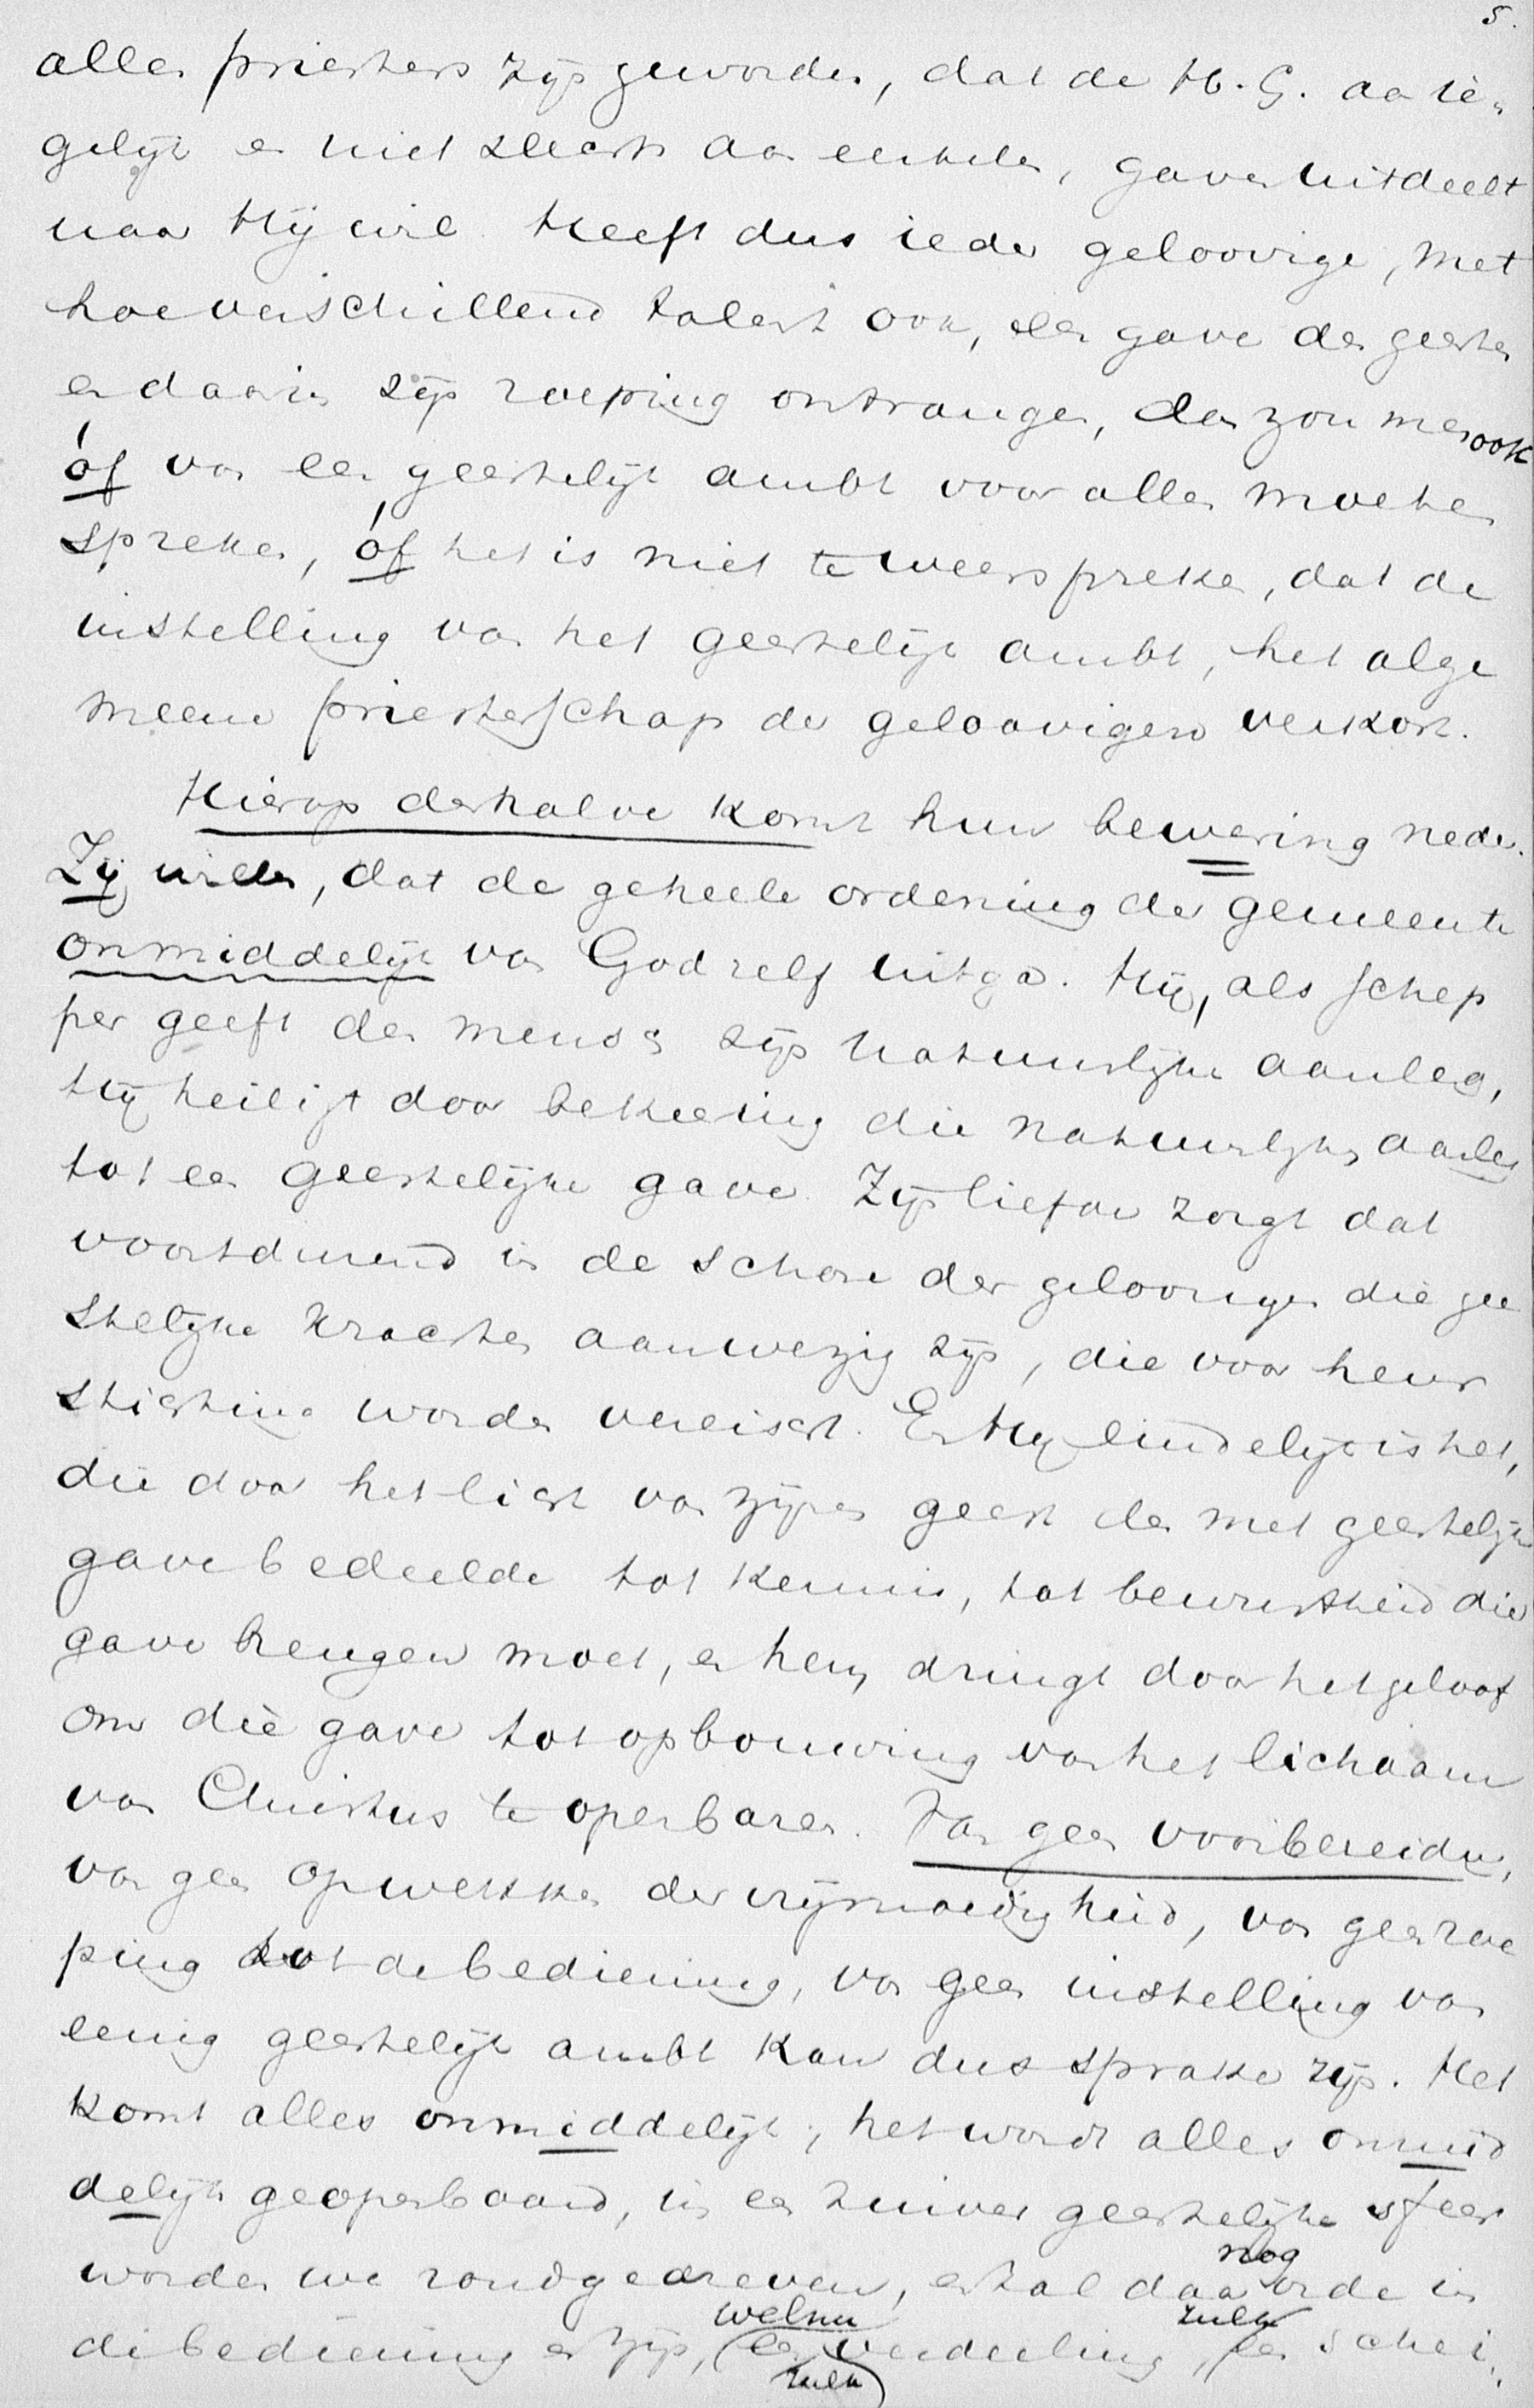 5.
allen priesters zijn geworden, dat de H. G. aan ie-
gelijk en niet slechts aan enkelen, gaven uitdeelt
naar Hij wil. Heeft dus ieder geloovige, met
hoe verschillend talent ook, een gave des geestes
en daarin zijn roeping ontvangen, dan zou men ook
óf van een geestelijk ambt voor allen moeten
spreken, óf het is niet te weerspreken, dat de
instelling van het geestelijk ambt, het alge
meene priesterschap der geloovigen verkort.
Hierop derhalve komt hun bewering neder.
Zij willen, dat de geheele ordening der gemeente
onmiddelijk van God zelf uitga. Hij, als schep
per geeft den mensch zijn natuurlijken aanleg,
Hij heiligt door bekeering die natuurlijken aanleg
tot een geestelijke gave. Zijn liefde zorgt dat
voortdurend in de schare der geloovigen die gee
stelijke krachten aanwezig zijn, die voor heur
stichting worden vereischt. En Hij eindelijk is het,
die door het licht van zijnen geest den met geestelijke
gave bedeelde tot kennis, tot bewustheid dier
gave brengen moet, en hem dringt door het geloof
om die gave tot opbouwing van het lichaam
van Christus te openbaren. Van geen voorbereiding,
van geen opwekken der vrijmoedigheid, van geen roe
ping tot de bediening, van geen instelling van
eenig geestelijk ambt kan dus sprake zijn. Het
komt alles onmiddelijk, het wordt alles onmid
delijk geopenbaard, in een zuiver geestelijke sfeer
worden we rondgedreven, er zal daar nog orde in
de bediening er zijn, welnu een verdeeling, zulk een schei-
zulk